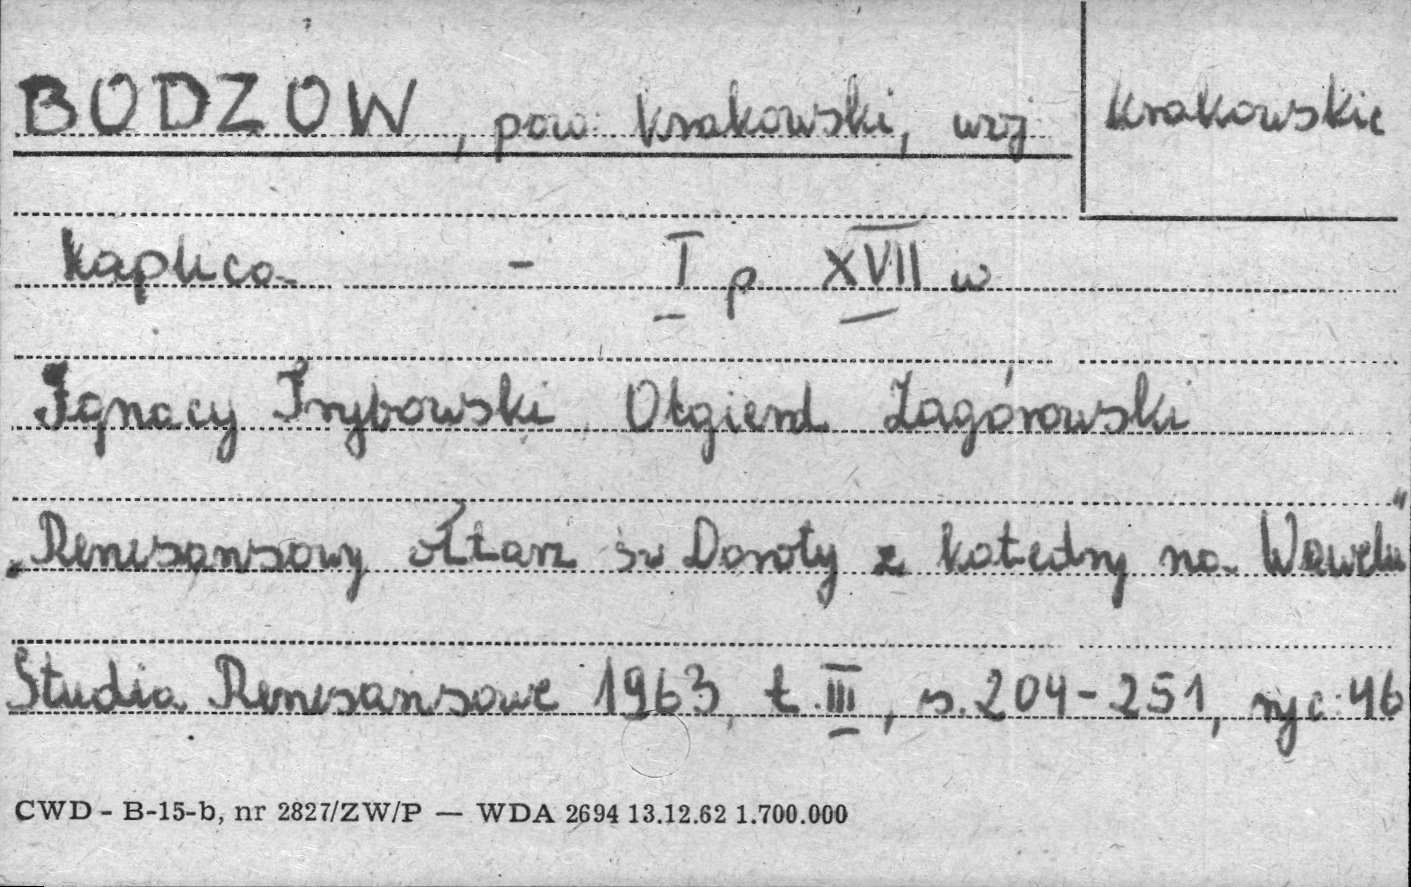 BODZOW, pow. krakowski, woj krakowskie
Kaplica - I p XVII w
Ignacy Trybowski, Olgierd Zagórowski
„Renesansowy ołtarz św Doroty z katedry na Wawelu”
Studia Renesansowe 1963, t. III, s. 204-251, ryc. 46
CWD - B-15-b, nr 2827/ZW/P — WDA 2694 13.12.62 1.700.000